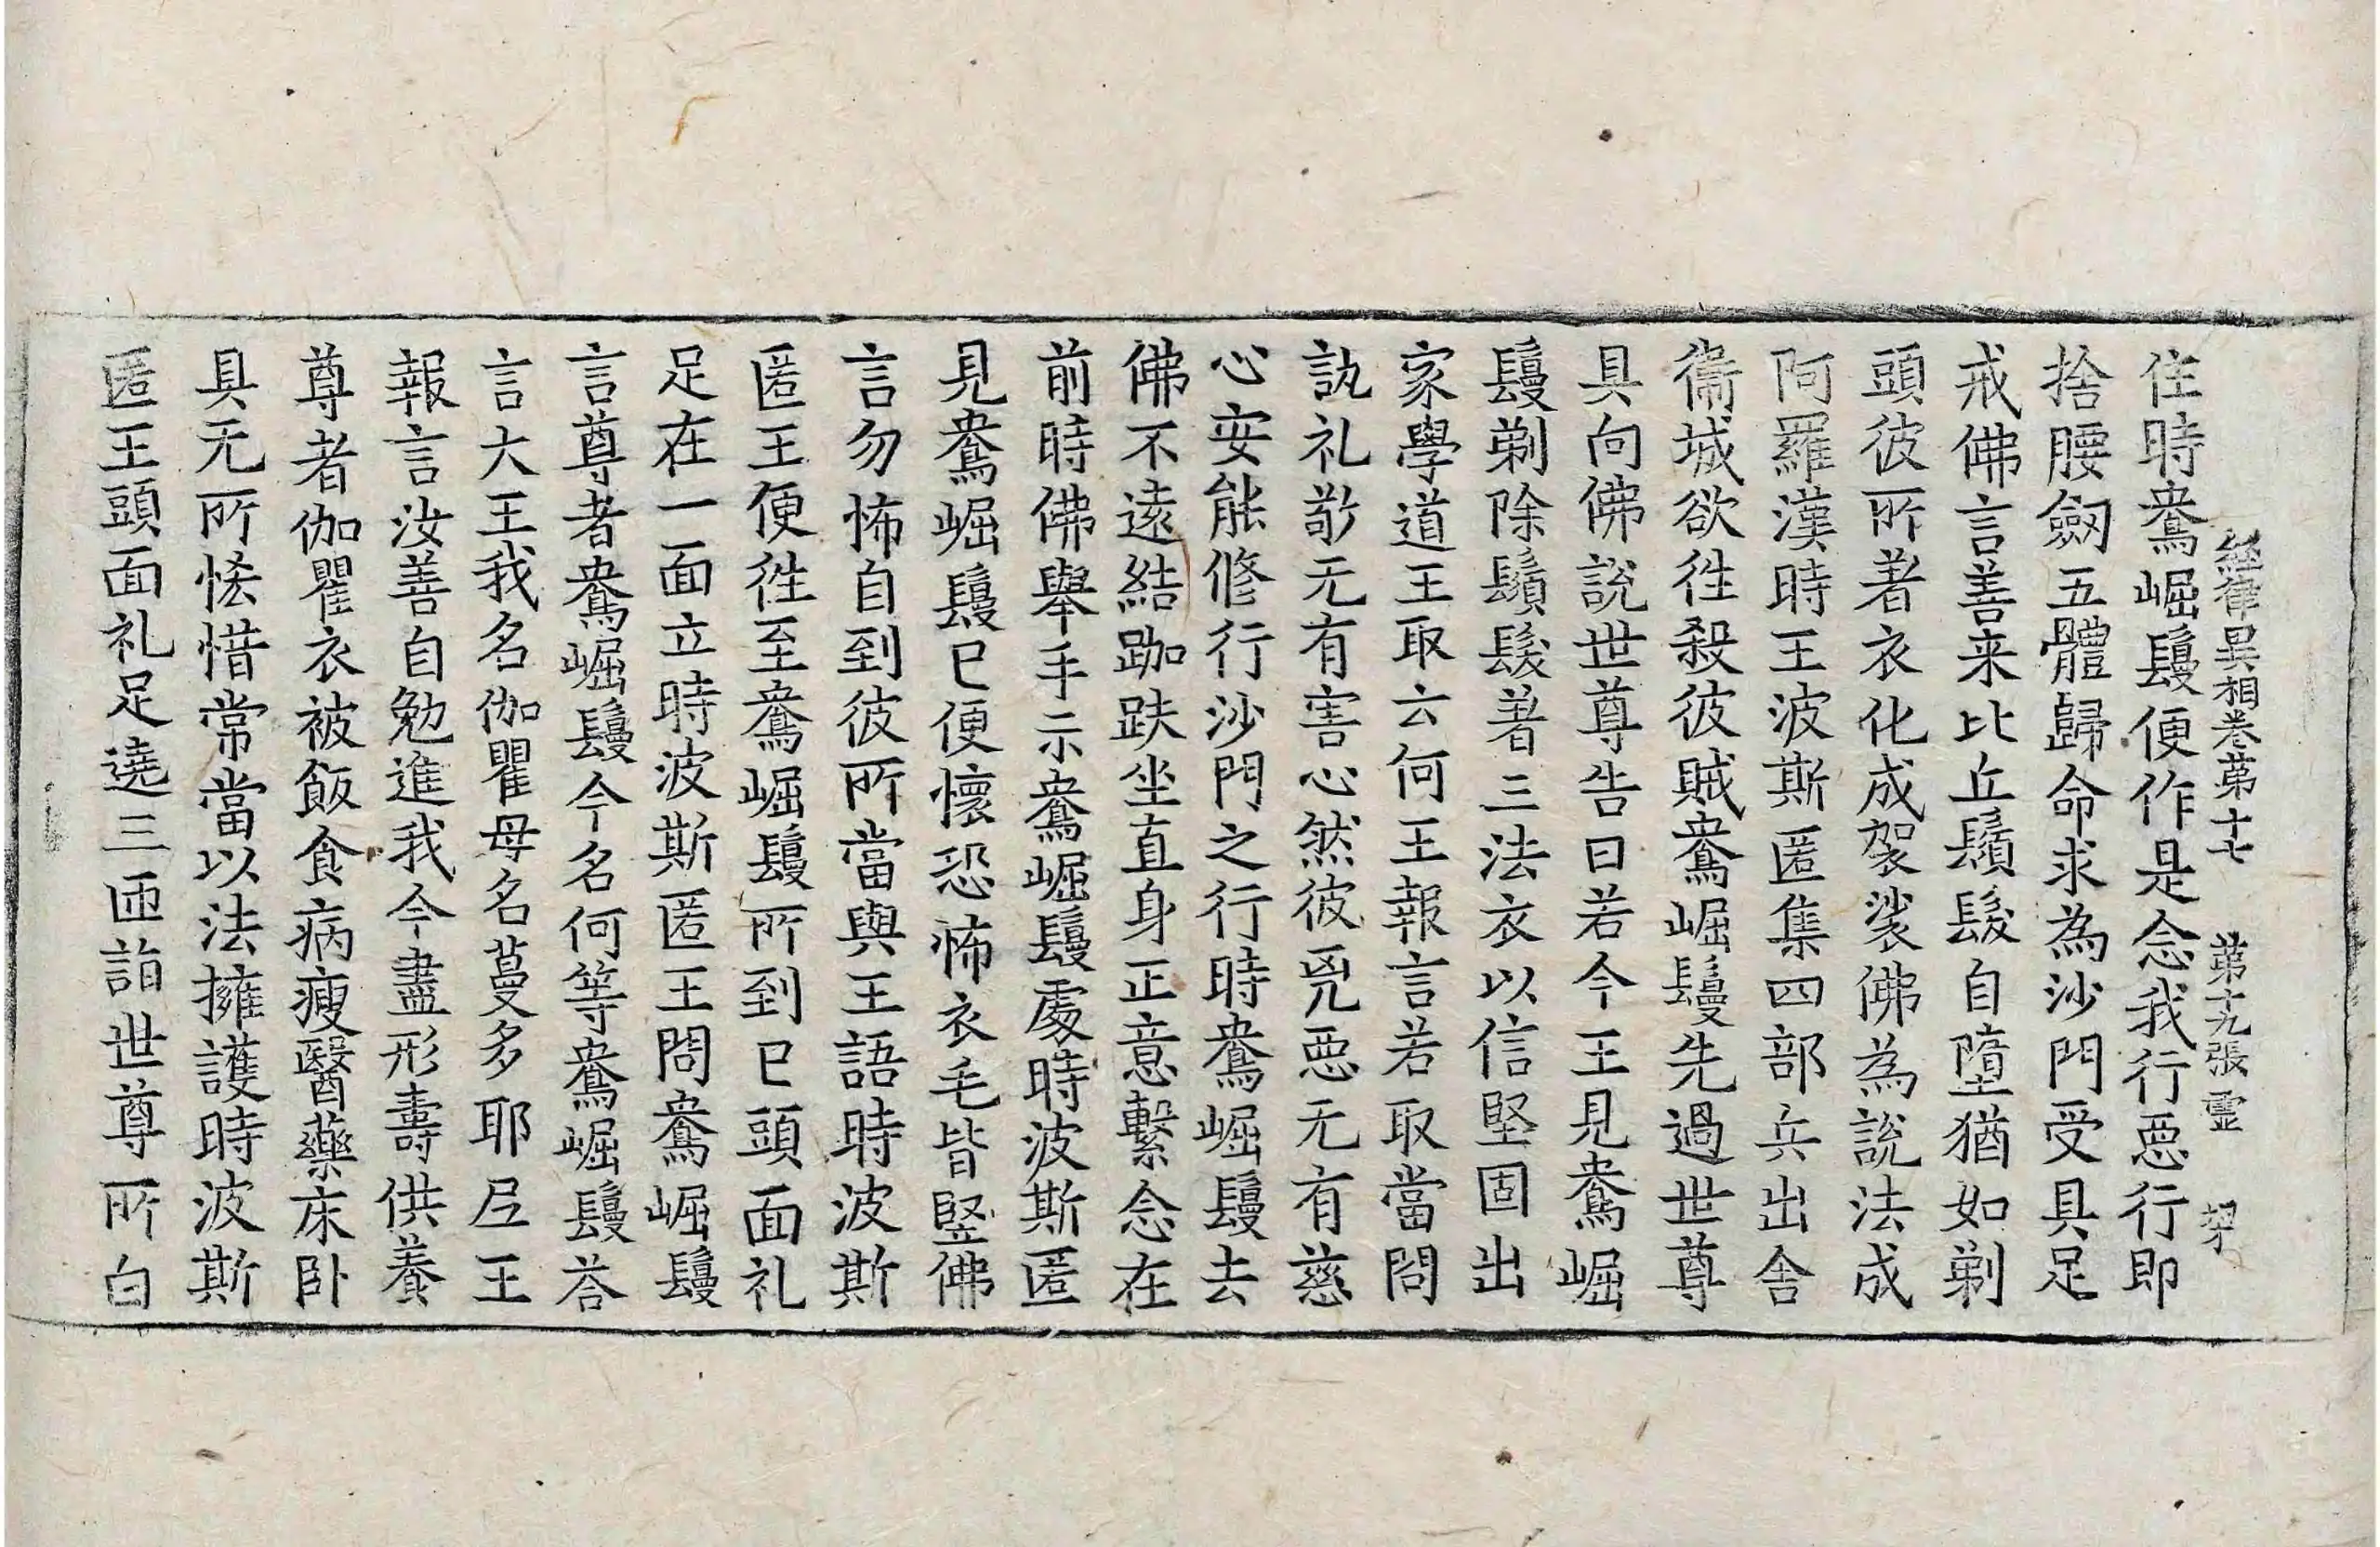 経律異相巻苐十七 苐十九張 霊
住時鴦崛鬘便作是念我行惡行即
捨腰劔五體歸命求為沙門受具足
戒佛言善来比丘鬚髮自墮猶如剃
頭彼所著衣化成袈裟佛為說法成
阿羅漢時王波斯匿集四部兵出舍
衞城欲徃殺彼賊鴦崛鬘先過世尊
具向佛說世尊告曰若今王見鴦崛
鬘剃除鬚髮著三法衣以信堅固出
家學道王取云何王報言若取當問
訊礼敬无有害心然彼兇惡无有慈
心安能修行沙門之行時鴦崛鬘去
佛不遠結跏趺坐直身正意繫念在
前時佛舉手示鴦崛鬘處時波斯匿
見鴦崛鬘已便懷恐怖衣毛皆竪佛
言勿怖自到彼所當與王語時波斯
匿王便徃至鴦崛鬘所到已頭面礼
足在一面立時波斯匿王問鴦崛鬘
言尊者鴦崛鬘今名何等鴦崛鬘荅
言大王我名伽瞿母名蔓多耶尼王
報言汝善自勉進我今盡形壽供養
尊者伽瞿衣被飯食病瘦醫藥床卧
具无所悋惜常當以法擁護時波斯
匿王頭面礼足遶三匝詣世尊所白